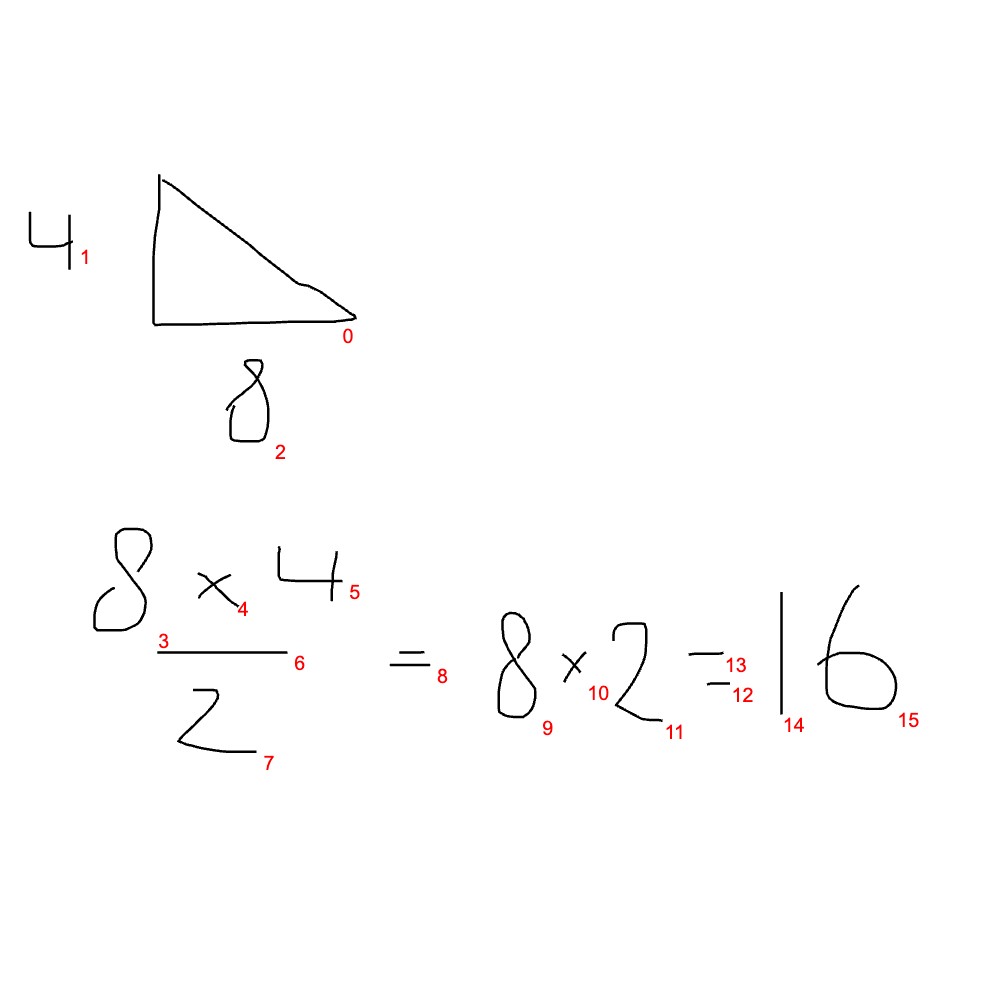 4
8
8 × 4
2
= 8 × 2 = 16
0
1
2
3
4
5
6
7
8
9
10
11
12
13
14
15